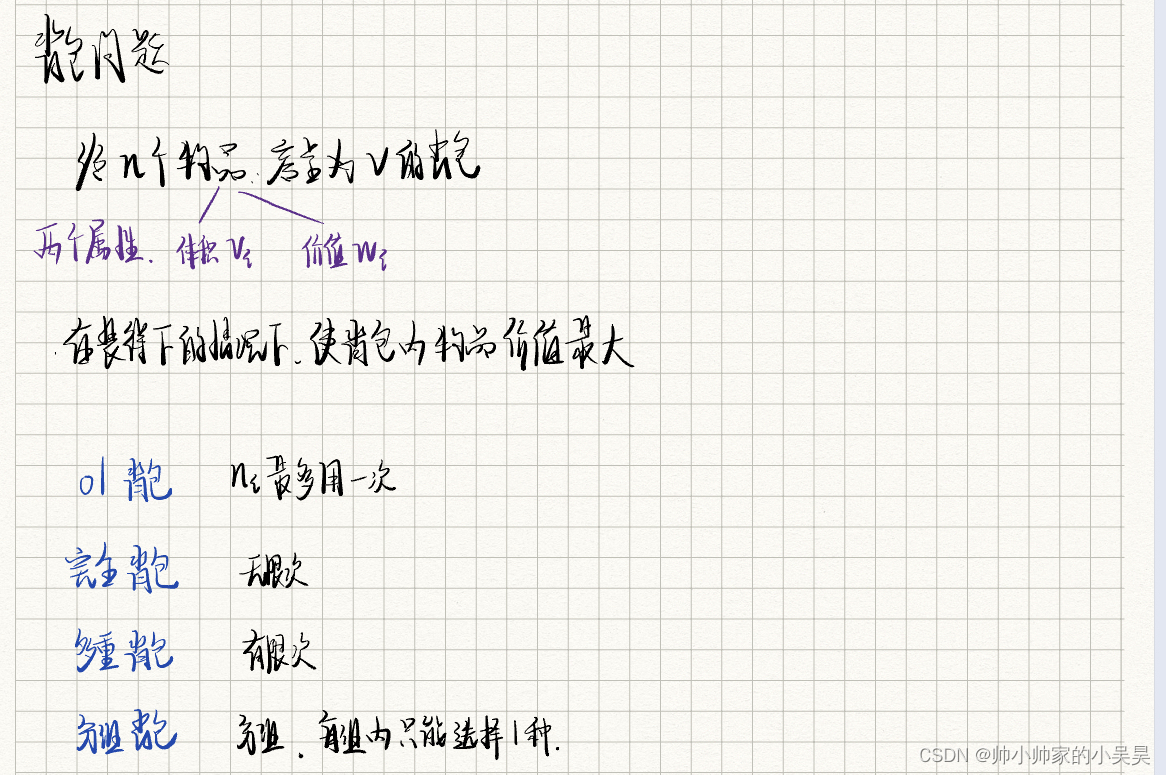 背包问题
给n个物品. 容量为V的背包
两个属性. 体积vᵢ 价值wᵢ
在装得下的情况下、使背包内物品价值最大
01背包 nᵢ最多用一次
完全背包 无限次
多重背包 有限次
分组背包 分组. 每组内只能选择1种.
CSDN @帅小帅家的小吴昊